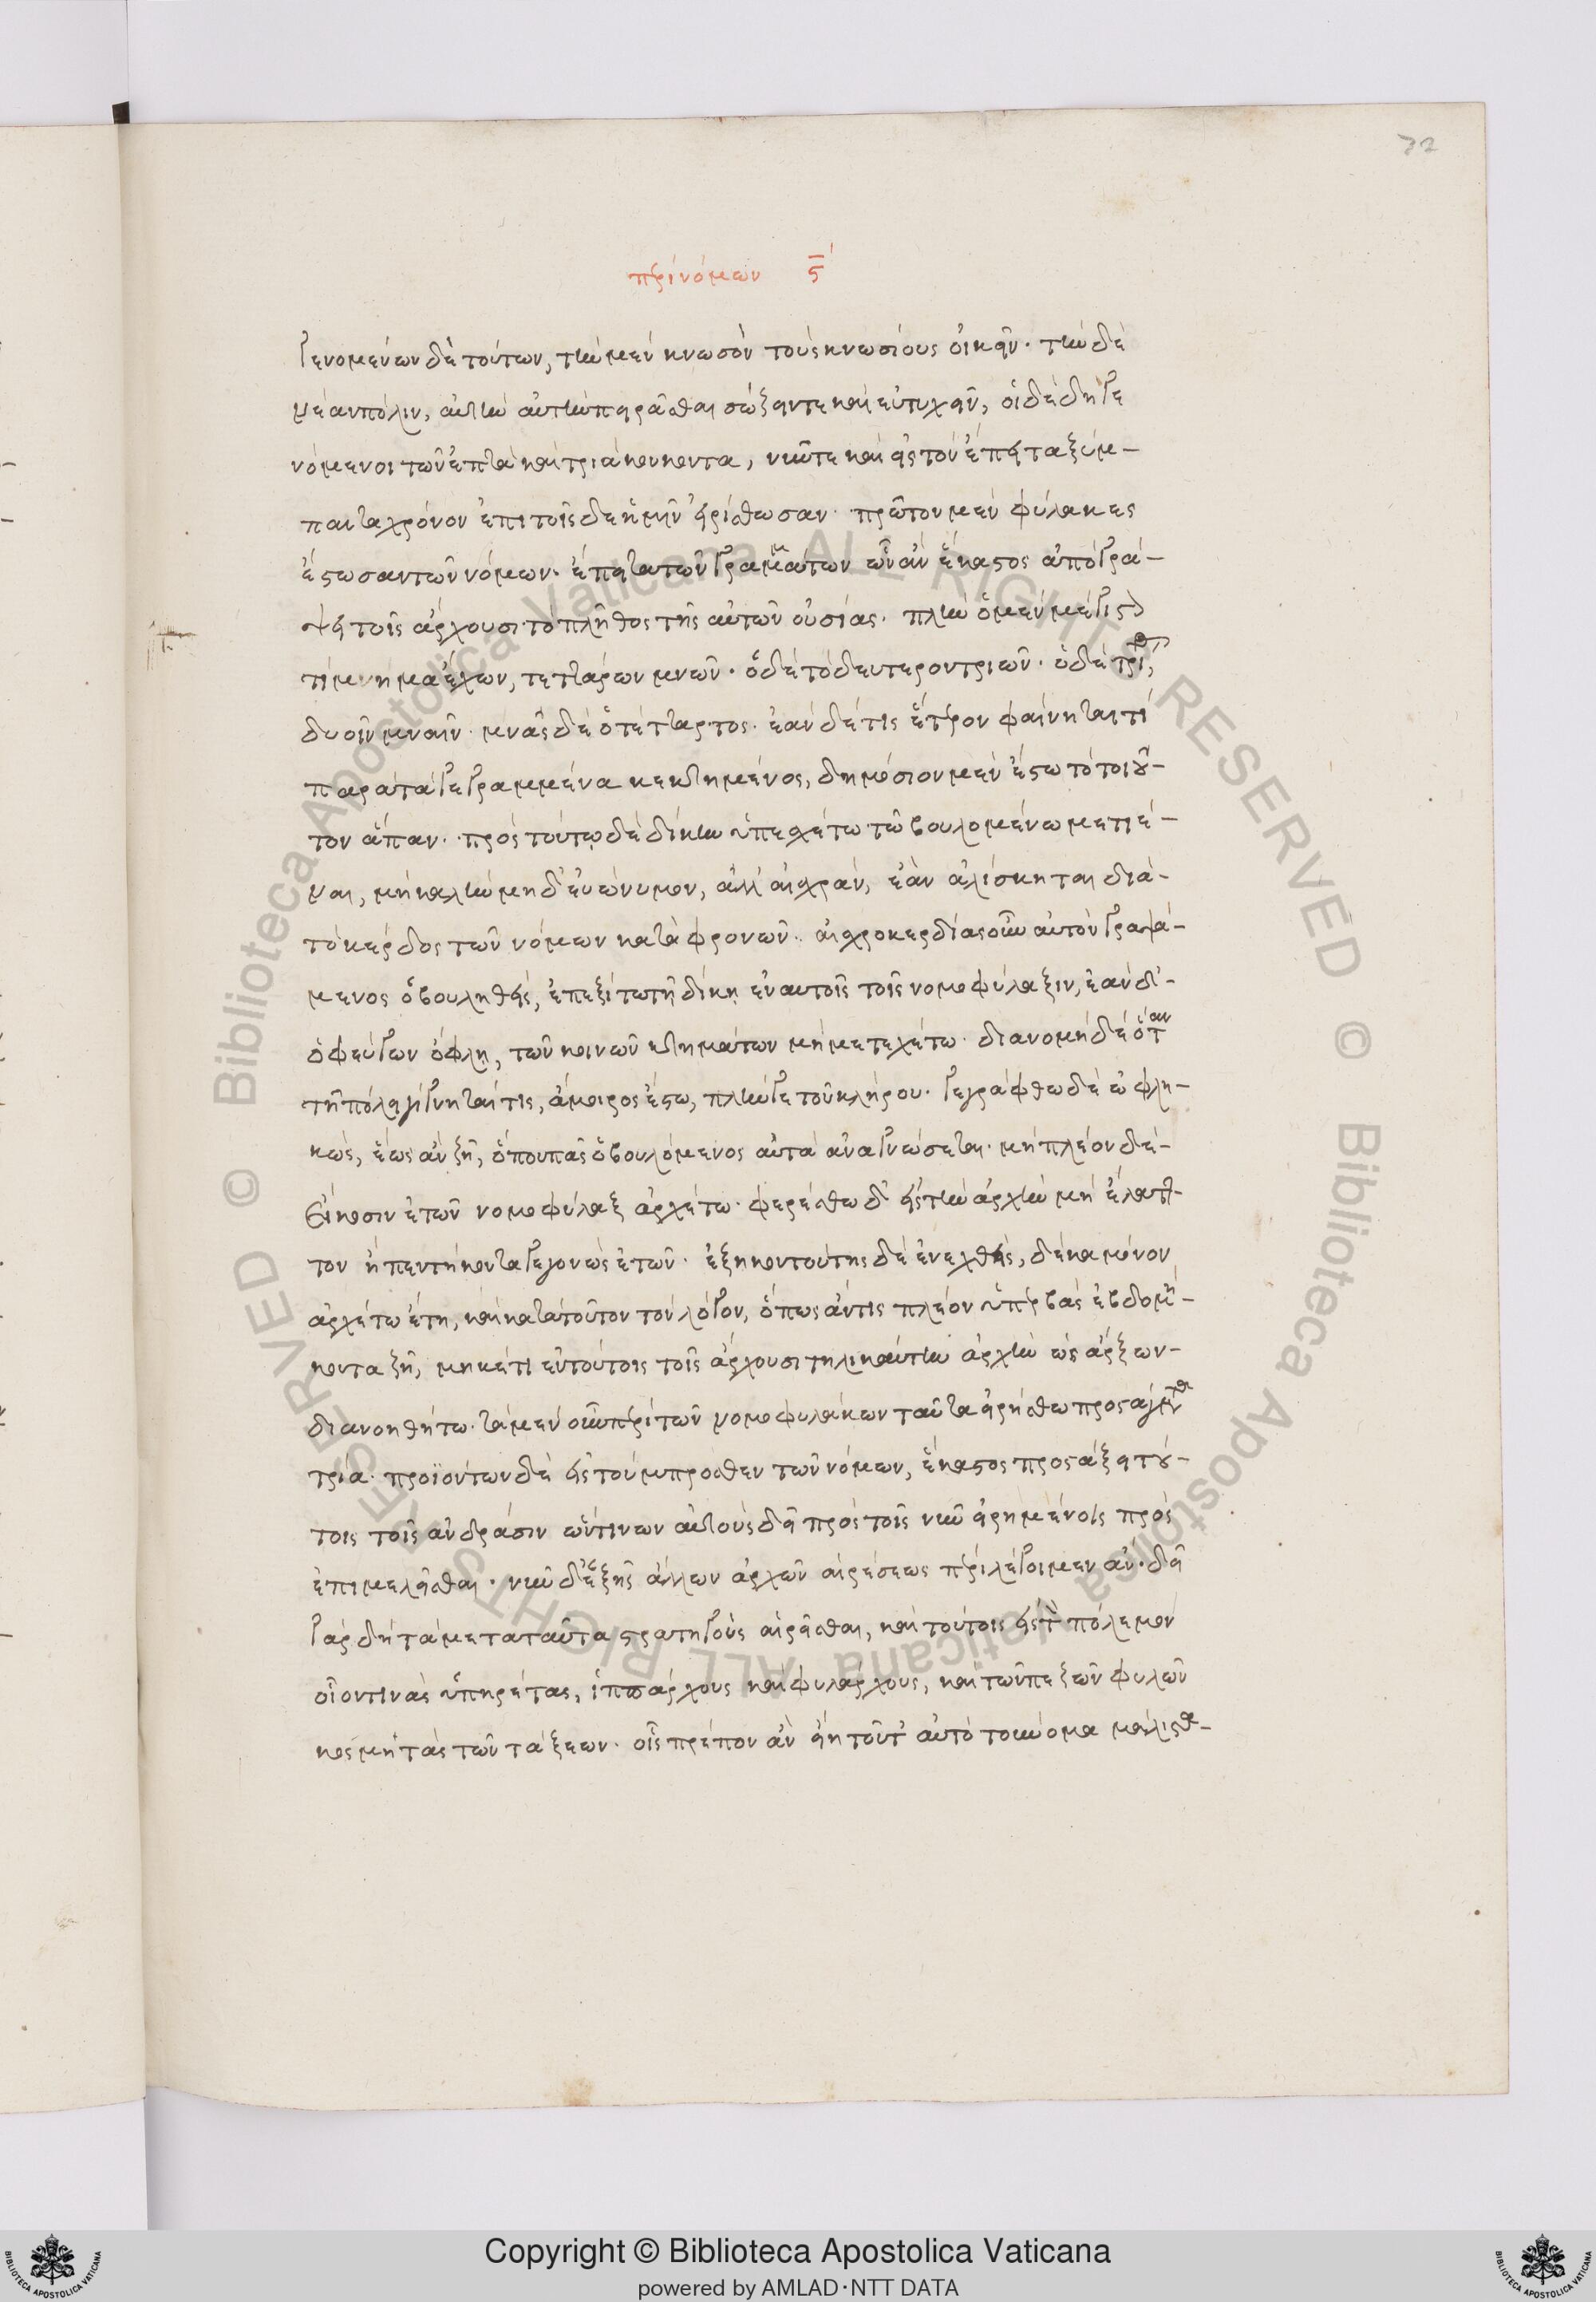 32
περὶ νόμων ϛ´
γενομένων δὲ τούτων, τὴν μὲν κνωσὸν τοὺς κνωσίους οἰκεῖν· τὴν δὲ
νέαν πόλιν, αὐτὴν αὑτὴν πειρᾶσθαι σώζειν τε καὶ εὐτυχεῖν, οἱ δὲ δὴ γε
νόμενοι τῶν ἑπτὰ καὶ τριάκοντα, νῦν τε καὶ εἰς τὸν ἔπειτα ξύμ-
παντα χρόνον ἐπὶ τοῖσδε ἡμῖν ᾑρήσθωσαν· πρῶτον μὲν φύλακες
ἔστωσαν τῶν νόμων· ἔπειτα τῶν γραμμάτων ὧν ἂν ἕκαστος ἀπογρά-
ψῃ τοῖς ἄρχουσι τὸ πλῆθος τῆς αὐτῶν οὐσίας· πλὴν ὁ μὲν μέγιστον
τίμημα ἔχων, τεττάρων μνῶν· ὁ δὲ τὸ δεύτερον τριῶν· ὁ δὲ τρίτος,
δυοῖν μναῖν· μνᾶς δὲ ὁ τέταρτος· ἐὰν δέ τις ἕτερον φαίνηταί τι
παρὰ τὰ γεγραμμένα κεκτημένος, δημόσιον μὲν ἔστω τὸ τοιοῦ-
τον ἅπαν· πρὸς τούτῳ δὲ δίκην ὑπεχέτω τῷ βουλομένω μετιέ-
ναι, μὴ καλὴν μηδ' εὐώνυμον, ἀλλ' αἰσχράν, ἐὰν ἁλίσκηται διὰ-
τὸ κέρδος τῶν νόμων καταφρονῶν· αἰσχροκερδίας οὖν αὐτὸν γραψά-
μενος ὁ βουληθεὶς, ἐπεξίτω τῇ δίκῃ ἐν αὐτοῖς τοῖς νομοφύλαξιν, ἐὰν δ'-
ὁ φεύγων ὄφλῃ, τῶν κοινῶν κτημάτων μὴ μετεχέτω· διανομὴ δὲ ὅταν
τῇ πόλει γίγνηταί τις, ἄμοιρος ἔστω, πλήν γε τοῦ κλήρου· γεγράφθω δὲ ὠφλη-
κὼς, ἕως ἂν ζῇ, ὅπου πᾶς ὁ βουλόμενος αὐτὰ ἀναγνώσεται· μὴ πλέον δὲ-
εἴκοσιν ἐτῶν νομοφύλαξ ἀρχέτω· φερέσθω δ' εἰς τὴν ἀρχὴν μὴ ἔλαττ-
τον ἢ πεντήκοντα γεγονὼς ἐτῶν· ἑξηκοντούτης δὲ ἐνεχθεὶς, δέκα μόνον
ἀρχέτω ἔτη, καὶ κατὰ τοῦτον τὸν λόγον, ὅπως ἄν τις πλέον ὑπερβὰς ἑβδομή-
κοντα ζῇ, μηκέτι ἐν τούτοις τοῖς ἄρχουσι τηλικαύτην ἀρχὴν ὡς ἄρξων-
διανοηθήτω· τὰ μὲν οὖν περὶ τῶν νομοφυλάκων ταῦτα εἰρήσθω προστάγματα
τρία· προϊόντων δὲ εἰς τοὔμπροσθεν τῶν νόμων, ἕκαστος προστάξει τού-
τοις τοῖς ἀνδράσιν ὧντινων αὐτοὺς δεῖ πρὸς τοῖς νῦν εἰρημένοις πρὸς
ἐπιμελεῖσθαι· νῦν δ' ἑξῆς ἄλλων ἀρχῶν αἱρέσεως πέρι λέγοιμεν ἄν· δεῖ
γὰρ δὴ τὰ μετὰ ταῦτα στρατηγοὺς αἱρεῖσθαι, καὶ τούτοις εἰς τὸν πόλεμον
οἷόν τινας ὑπηρέτας, ἱππάρχους καὶ φυλάρχους, καὶ τῶν πεζῶν φυλῶν
κοσμητὰς τῶν τάξεων· οἷς πρέπον ἂν εἴη τοῦτ' αὐτὸ τοὔνομα μάλιστα-
Copyright © Biblioteca Apostolica Vaticana
powered by AMLAD·NTT DATA
© Biblioteca Apostolica Vaticana ALL RIGHTS RESERVED
© Biblioteca Apostolica Vaticana ALL RIGHTS RESERVED
BIBLIOTECA APOSTOLICA VATICANA
BIBLIOTECA APOSTOLICA VATICANA